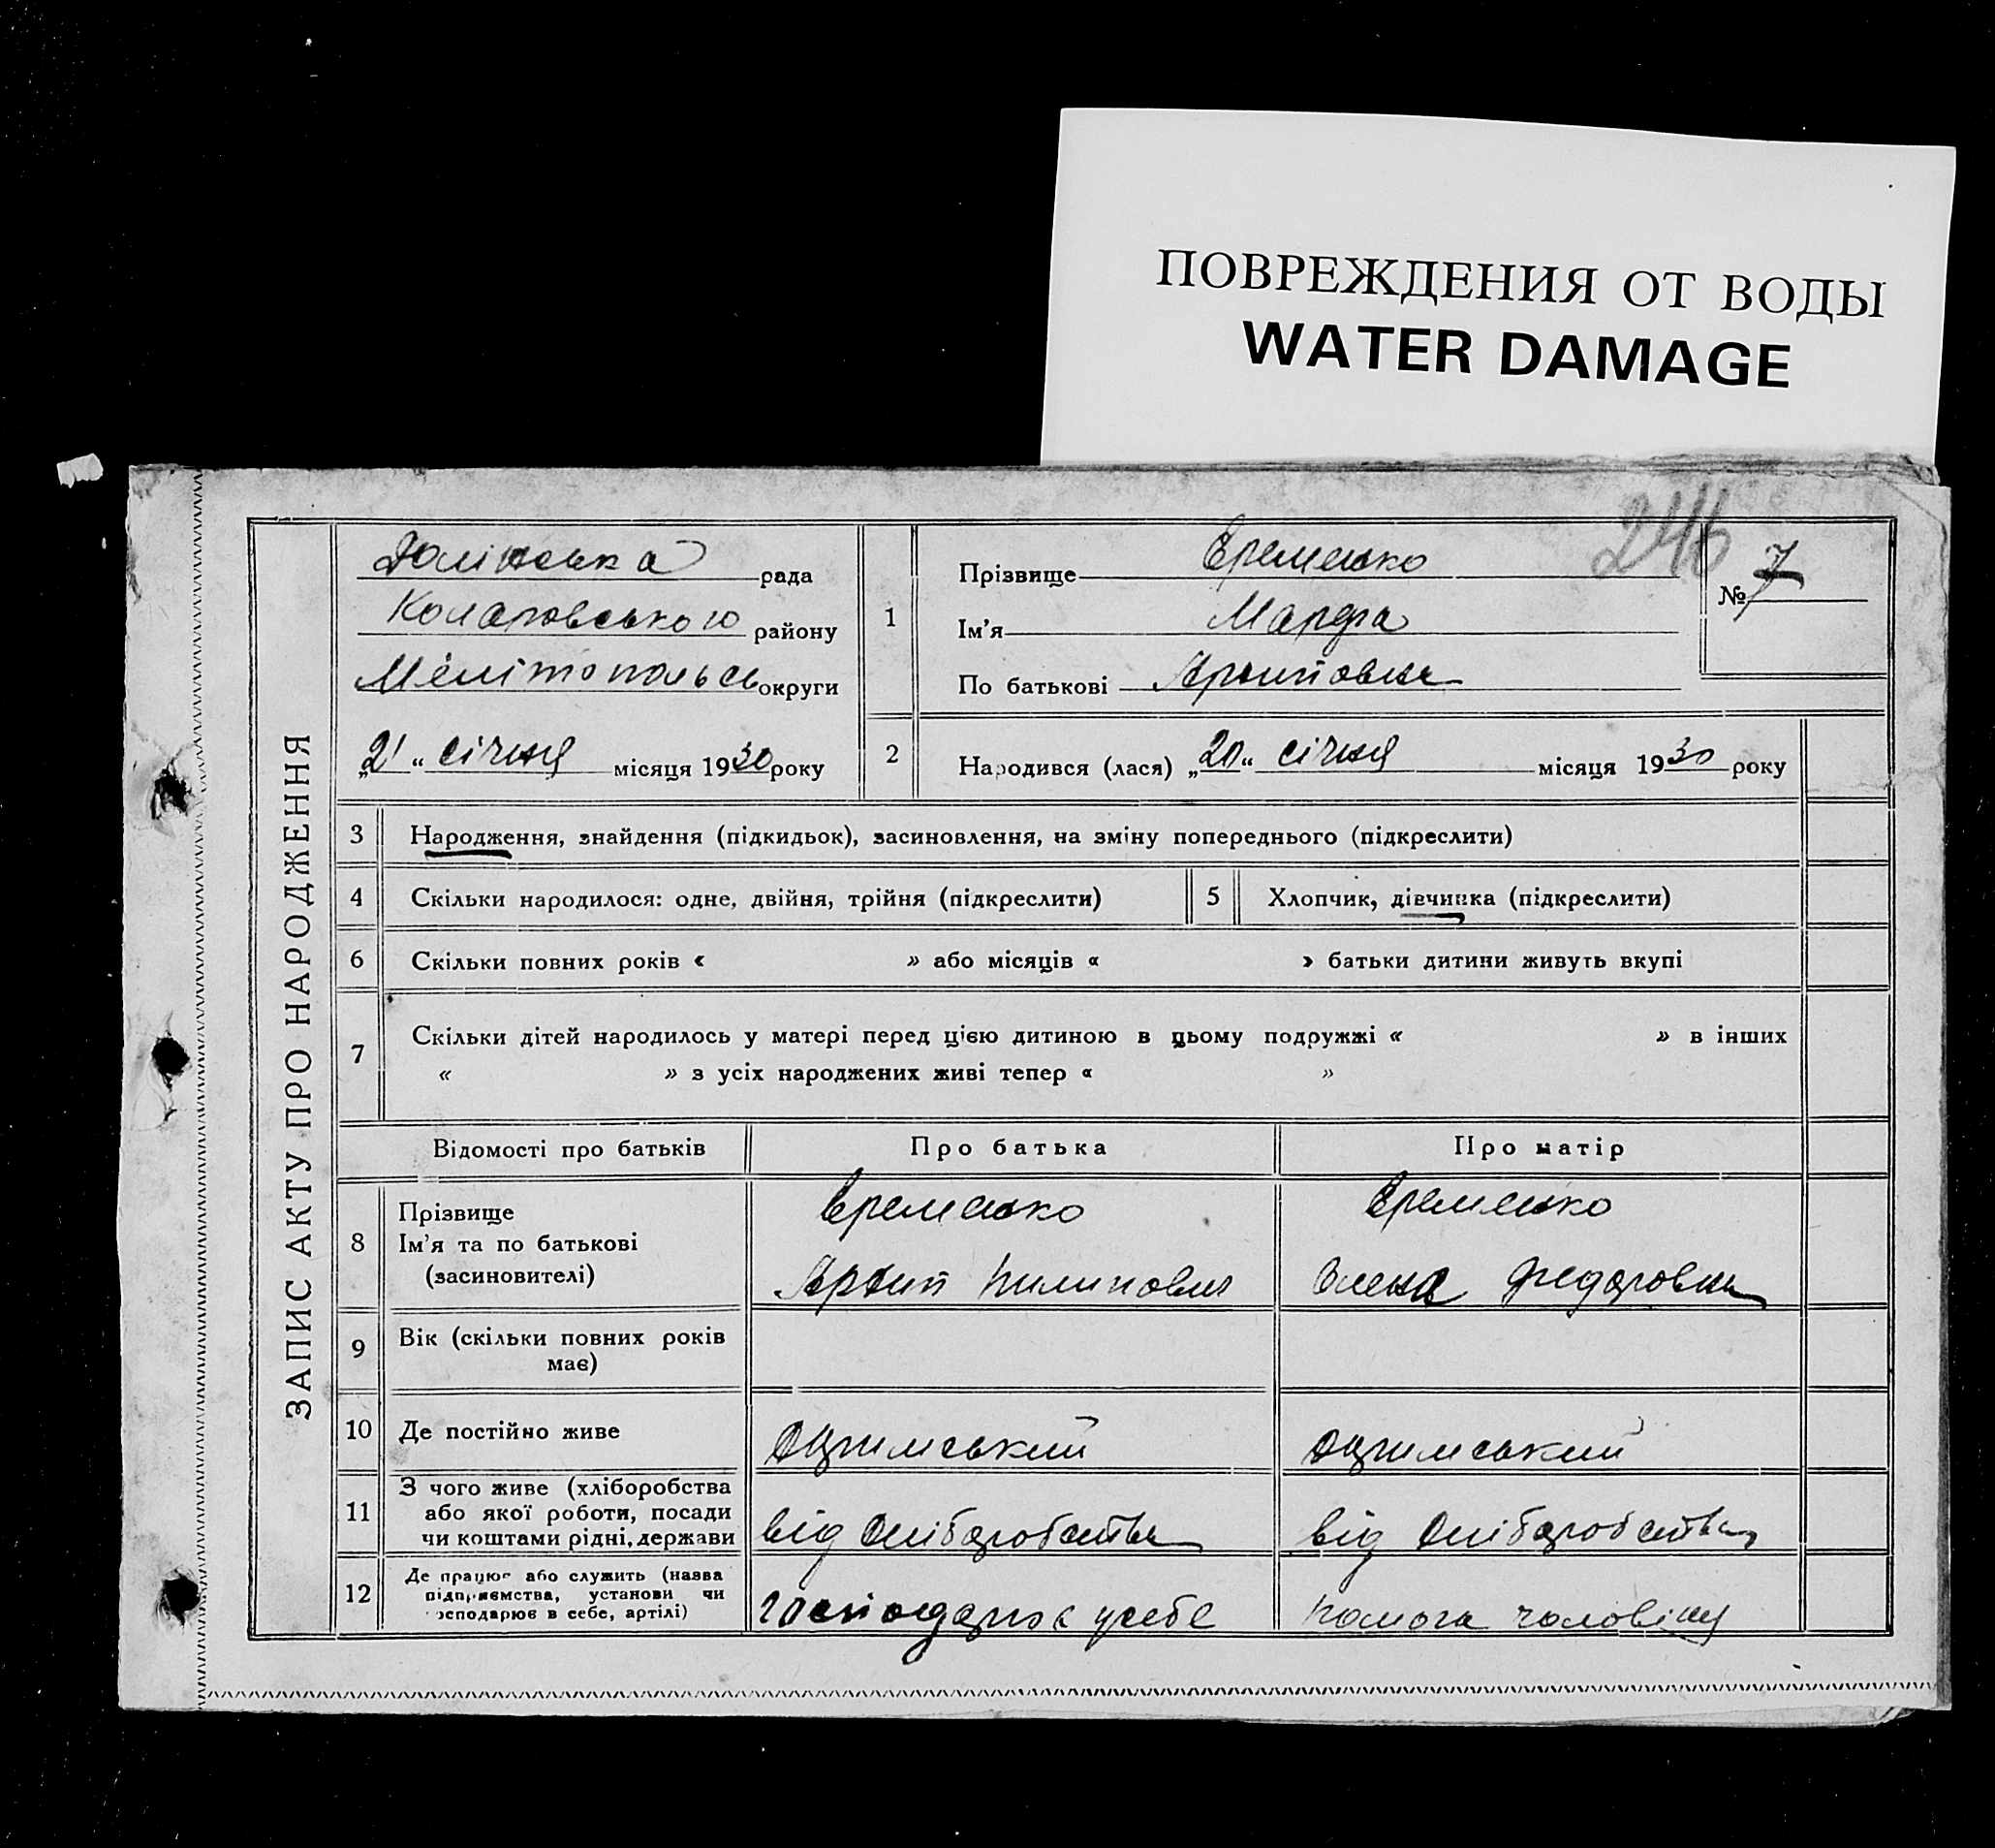 ПОВРЕЖДЕНИЯ ОТ ВОДЫ
WATER DAMAGE
246
ЗАПИС АКТУ ПРО НАРОДЖЕННЯ
рада
Коларовського району
Мелітопольсь округи
„21“ січня місяця 1930 року
1
Прізвище Єременко
Ім’я Марфа
По батькові Архиповна
№ 7
2 Народився (лася) „20“ січня місяця 1930 року
3 Народження, знайдення (підкидьок), засиновлення, на зміну попереднього (підкреслити)
4 Скільки народилося: одне, двійня, трійня (підкреслити)
5 Хлопчик, дівчинка (підкреслити)
6 Скільки повних років « » або місяців « » батьки дитини живуть вкупі
7 Скільки дітей народилось у матері перед цією дитиною в цьому подружжі « » в інших
« » з усіх народжених живі тепер « »
Відомості про батьків Про батька Про матір
8
Прізвище
Ім’я та по батькові
(засиновителі)
Єременко
Архип Пилипович
Єременко
Олена Федоровна
9 Вік (скільки повних років
має)
10 Де постійно живе
11
З чого живе (хліборобства
або якої роботи, посади
чи коштами рідні, держави
від хліборобства
від хліборобства
12
Де працює або служить (назва
підприємства, установи чи
господарює в себе, артілі)
господарює у себе
помога чоловіку